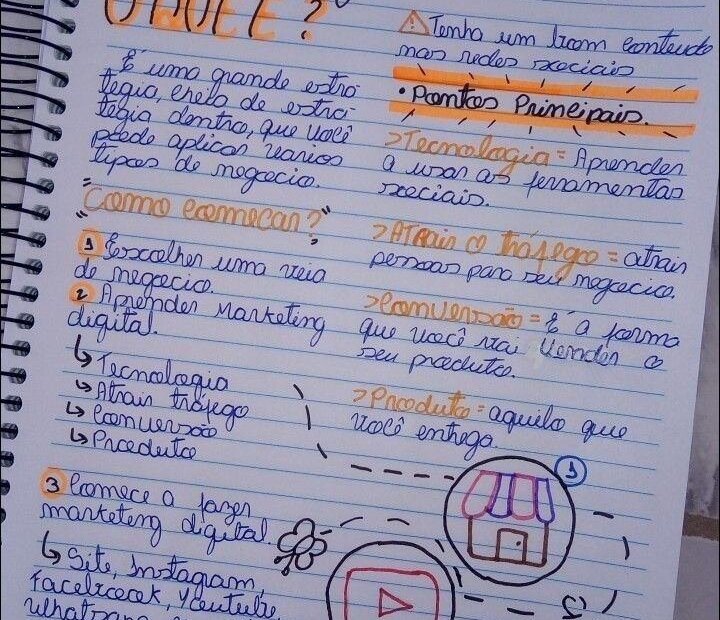 O QUE É?
É uma grande estra-
tegia, cheia de estra-
tegia dentro, que você
pode aplicar varios
tipos de negocio.
"Como começar?"
1 Escolher uma veia
de negocio.
2 Aprender Marketing
digital.
↳ Tecnologia
↳ Atrair tráfego
↳ Conversão
↳ Produto
3 Comece a fazer
marketing digital.
↳ Site, Instagram,
Facebook, Youtube,
Whatsapp
⚠ Tenha um bom conteudo
nas redes sociais
• Pontos Principais.
>Tecnologia = Aprender
a usar as ferramentas
sociais.
>Atrair o tráfego = atrair
pessoas para seu negocio.
>Conversão = É a forma
que você vai Vender o
seu produto.
>Produto = aquilo que
você entrega
1